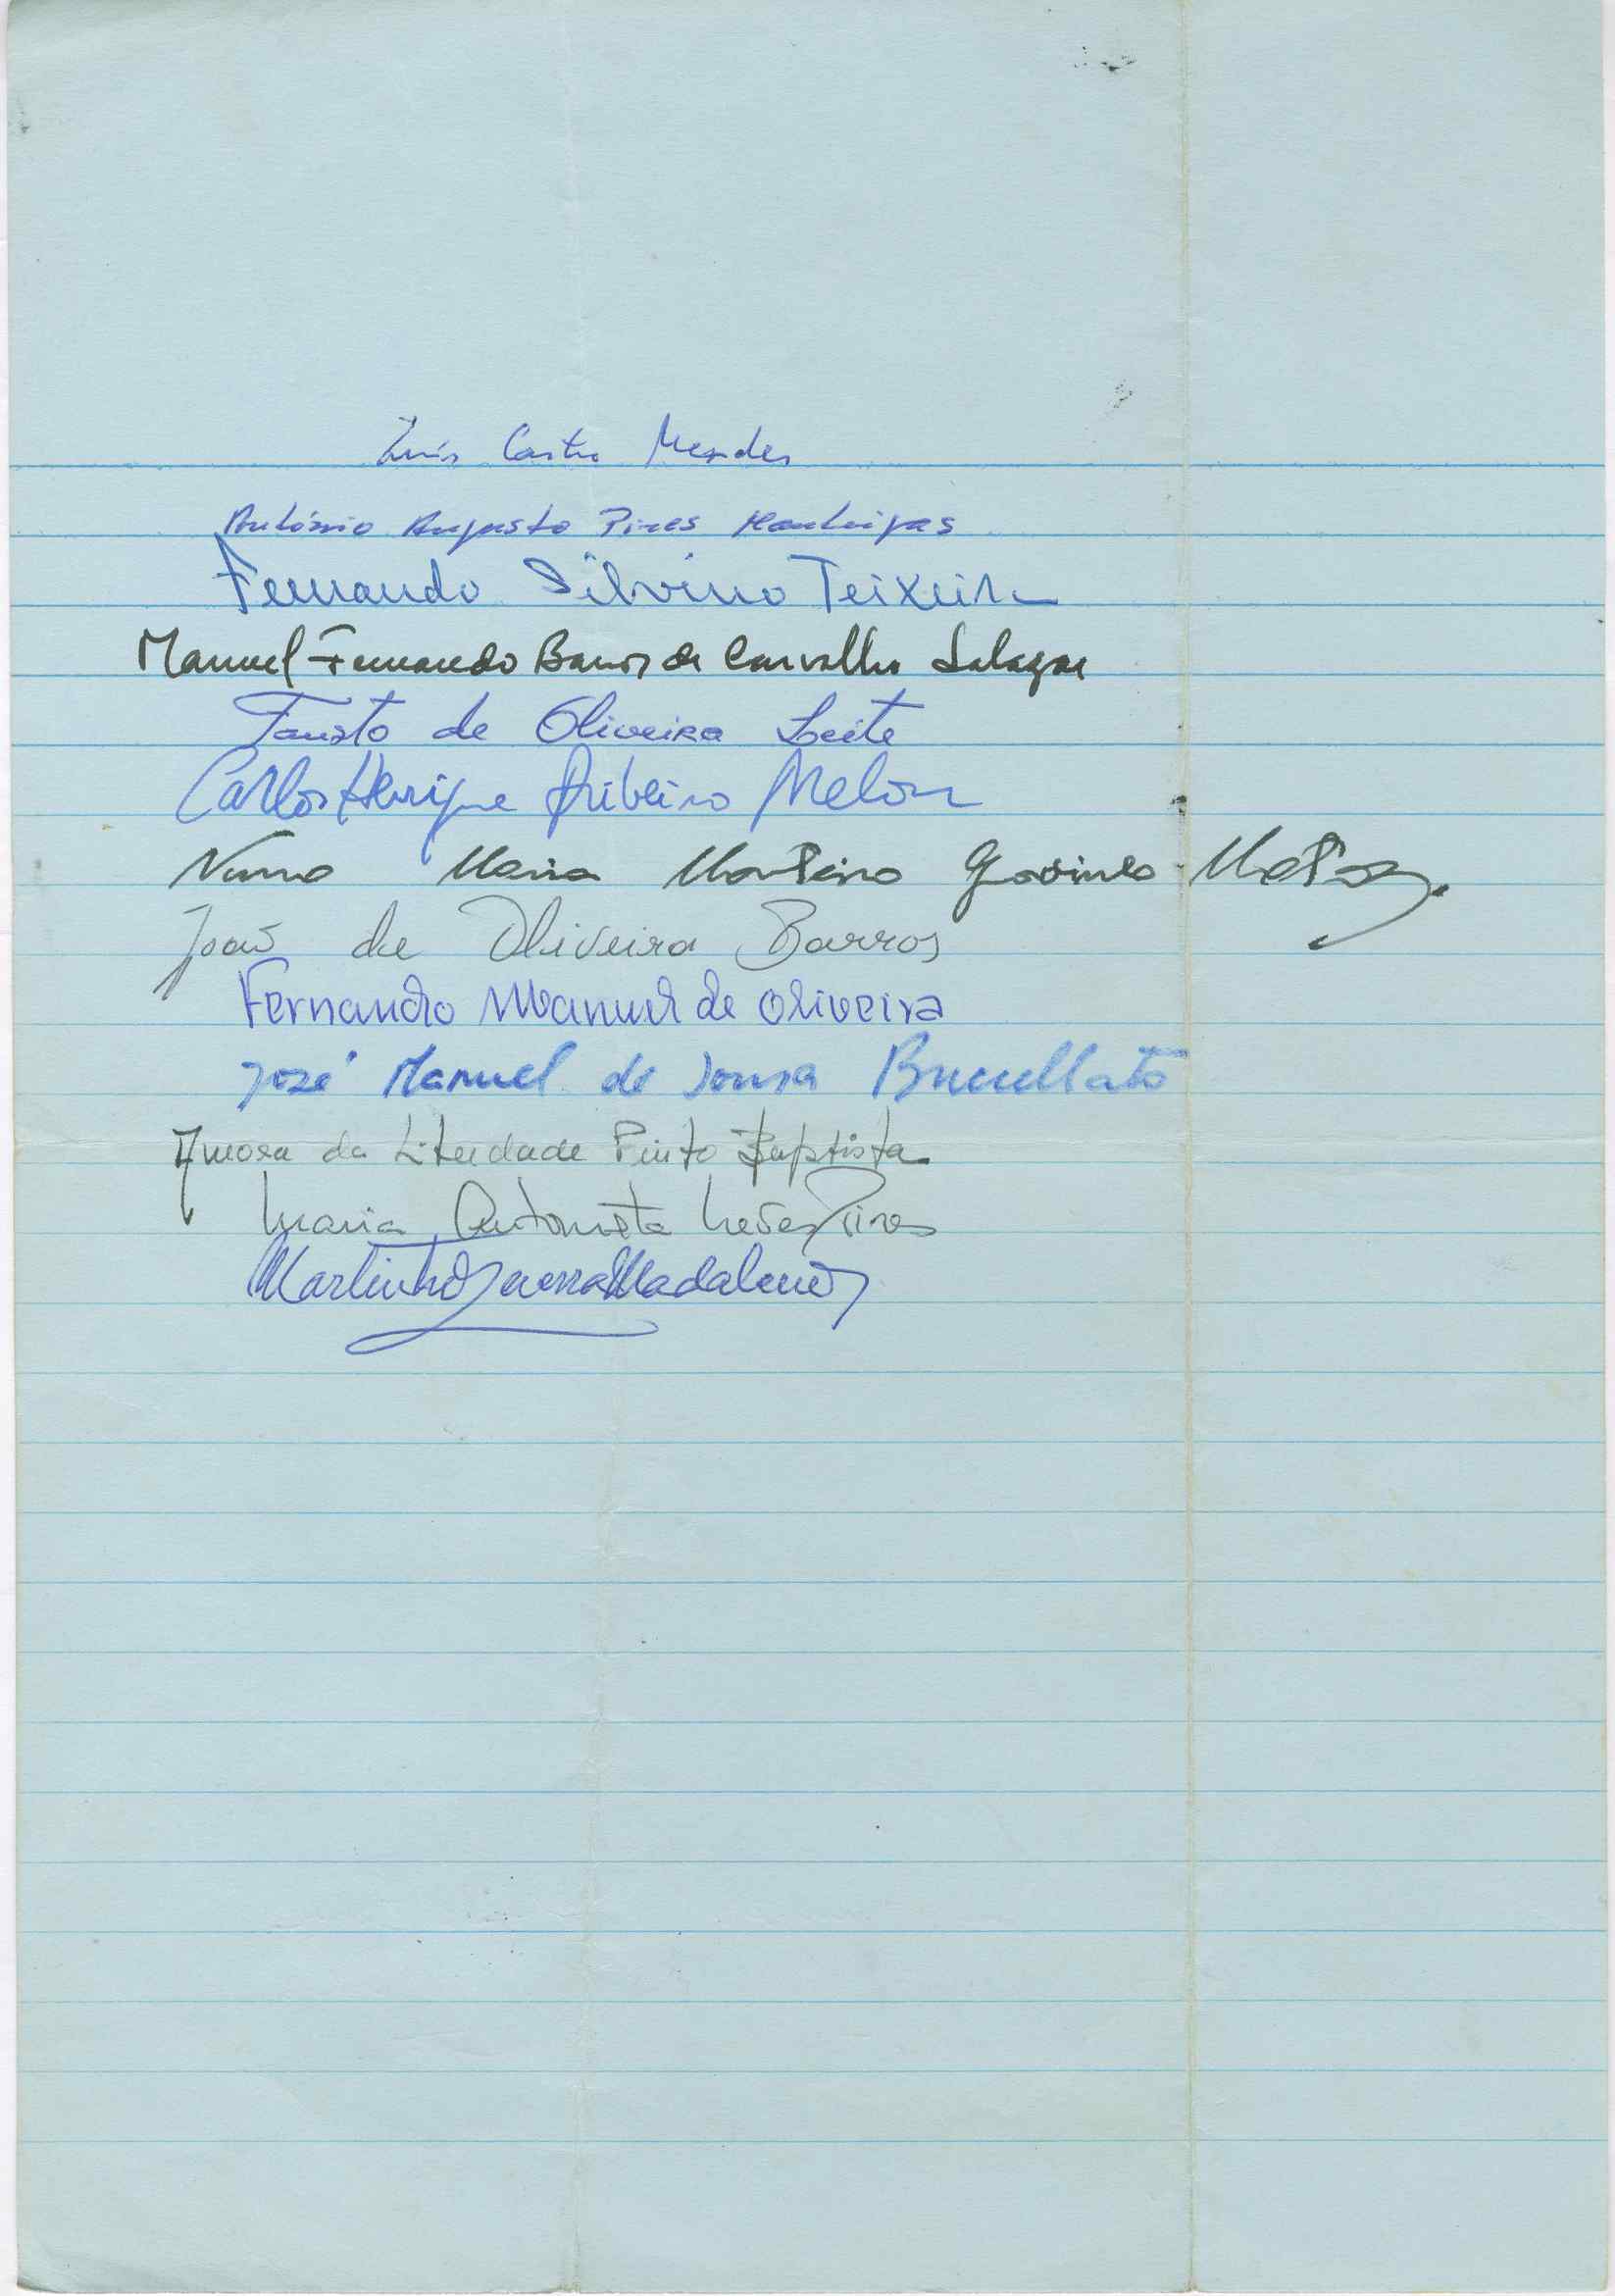 Luís Castro Mendes
António Augusto Pires Manteigas
Fernando Silvino Teixeira
Manuel Fernando Barros de Carvalho Salazar
Fausto de Oliveira Leite
Carlos Henrique Ribeiro Melon
Nuno Maria Monteiro Godinho Matos
João de Oliveira Barros
Fernando Manuel de Oliveira
José Manuel de Sousa Brucellato
da Liberdade Pinto Baptista
Maria Antonieta Neves Pires
Martinho Madaleno